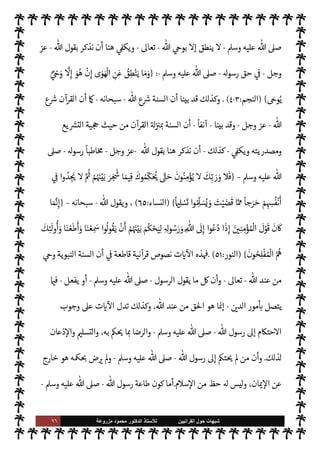 صلى الله عليه وسلم - لا ينطق إلا بوحي الله - تعالى - ويكفي هنا أن نذكر بقول الله - عز
وجل - في حق رسوله - صلى الله عليه وسلم - : {وَمَا يَنْطِقُ عَنِ الْهَوَى إِنْ هُوَ إِلَّا وَحْيٌ
يُوحَى} (النجم:٤،٣). وكذلك قد بينا أن السنة شرع الله - سبحانه - كما أن القرآن شرع
الله - عز وجل - وقد بينا - آنفاً - أن السنة بمنزلة القرآن من حيث حجية التشريع
ومصدريته ويكفي - كذلك - أن نذكر هنا بقول الله -عز وجل - مخاطباً رسوله - صلى
الله عليه وسلم - {فَلَا وَرَبِّكَ لَا يُؤْمِنُونَ حَتَّى يُحَكِّمُوكَ فِيمَا شَجَرَ بَيْنَهُمْ ثُمَّ لَا يَجِدُوا فِي
أَنْفُسِهِمْ حَرَجاً مِمَّا قَضَيْتَ وَيُسَلِّمُوا تَسْلِيماً} (النساء:٦٥) ، ويقول الله - سبحانه - {إِنَّمَا
كَانَ قَوْلَ الْمُؤْمِنِينَ إِذَا دُعُوا إِلَى اللَّهِ وَرَسُولِهِ لِيَحْكُمَ بَيْنَهُمْ أَنْ يَقُولُوا سَمِعْنَا وَأَطَعْنَا وَأُولَئِكَ
هُمُ الْمُفْلِحُونَ} (النور:٥١) .فهذه الآيات نصوص قرآنية قاطعة في أن السنة النبوية وحي
من عند الله - تعالى - وأن كل ما يقول الرسول - صلى الله عليه وسلم - أو يفعل - فيما
يتصل بأمور الدين - إنما هو الحق من عند الله، وكذلك تدل الآيات على وجوب
الاحتكام إلى رسول الله - صلى الله عليه وسلم - والرضا بما يحكم به، والتسليم والإذعان
لذلك. وأن من لم يحتكم إلى رسول الله - صلى الله عليه وسلم - ولم يرض بحكمه هو خارج
عن الإيمان، وليس له حظ من الإسلام.أما كون طاعة رسول الله - صلى الله عليه وسلم -
شبهات حول القرآنيين للأستاذ الدكتور محمود مزروعة ٧٦